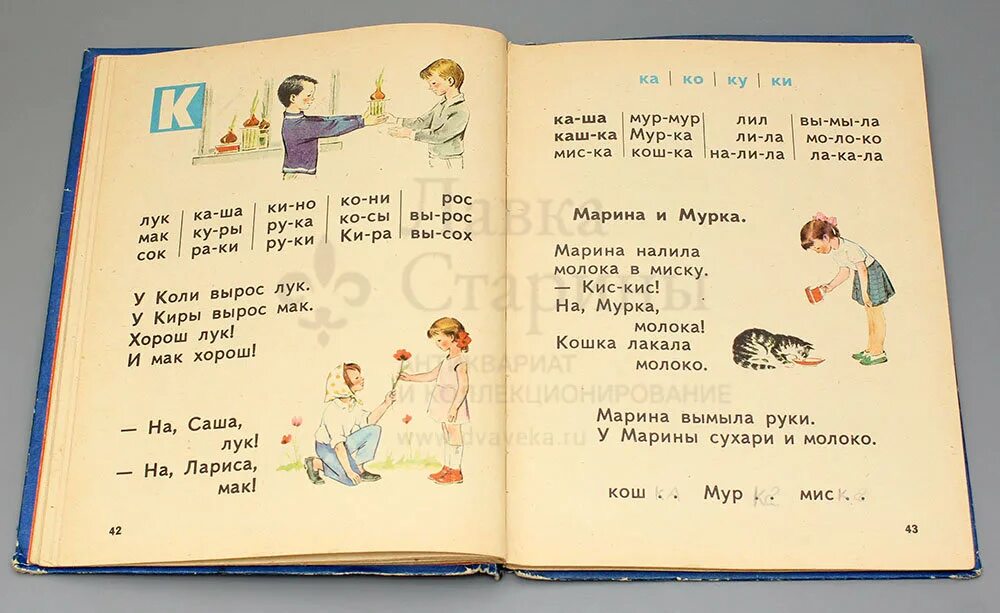 К
лук | ка-ша | ки-но | ко-ни | рос
мак | ку-ры | ру-ка | ко-сы | вы-рос
сок | ра-ки | ру-ки | Ки-ра | вы-сох
У Коли вырос лук.
У Киры вырос мак.
Хорош лук!
И мак хорош!
— На, Саша,
лук!
— На, Лариса,
мак!
42
ка | ко | ку | ки
ка-ша | мур-мур | лил | вы-мы-ла
каш-ка | Мур-ка | ли-ла | мо-ло-ко
мис-ка | кош-ка | на-ли-ла | ла-ка-ла
Марина и Мурка.
Марина налила
молока в миску.
— Кис-кис!
На, Мурка,
молока!
Кошка лакала
молоко.
Марина вымыла руки.
У Марины сухари и молоко.
кош ка . . Мур ка . . мис ка . .
43
Лавка
Старины
АНТИКВАРИАТ
И КОЛЛЕКЦИОНИРОВАНИЕ
www.dvaveka.ru